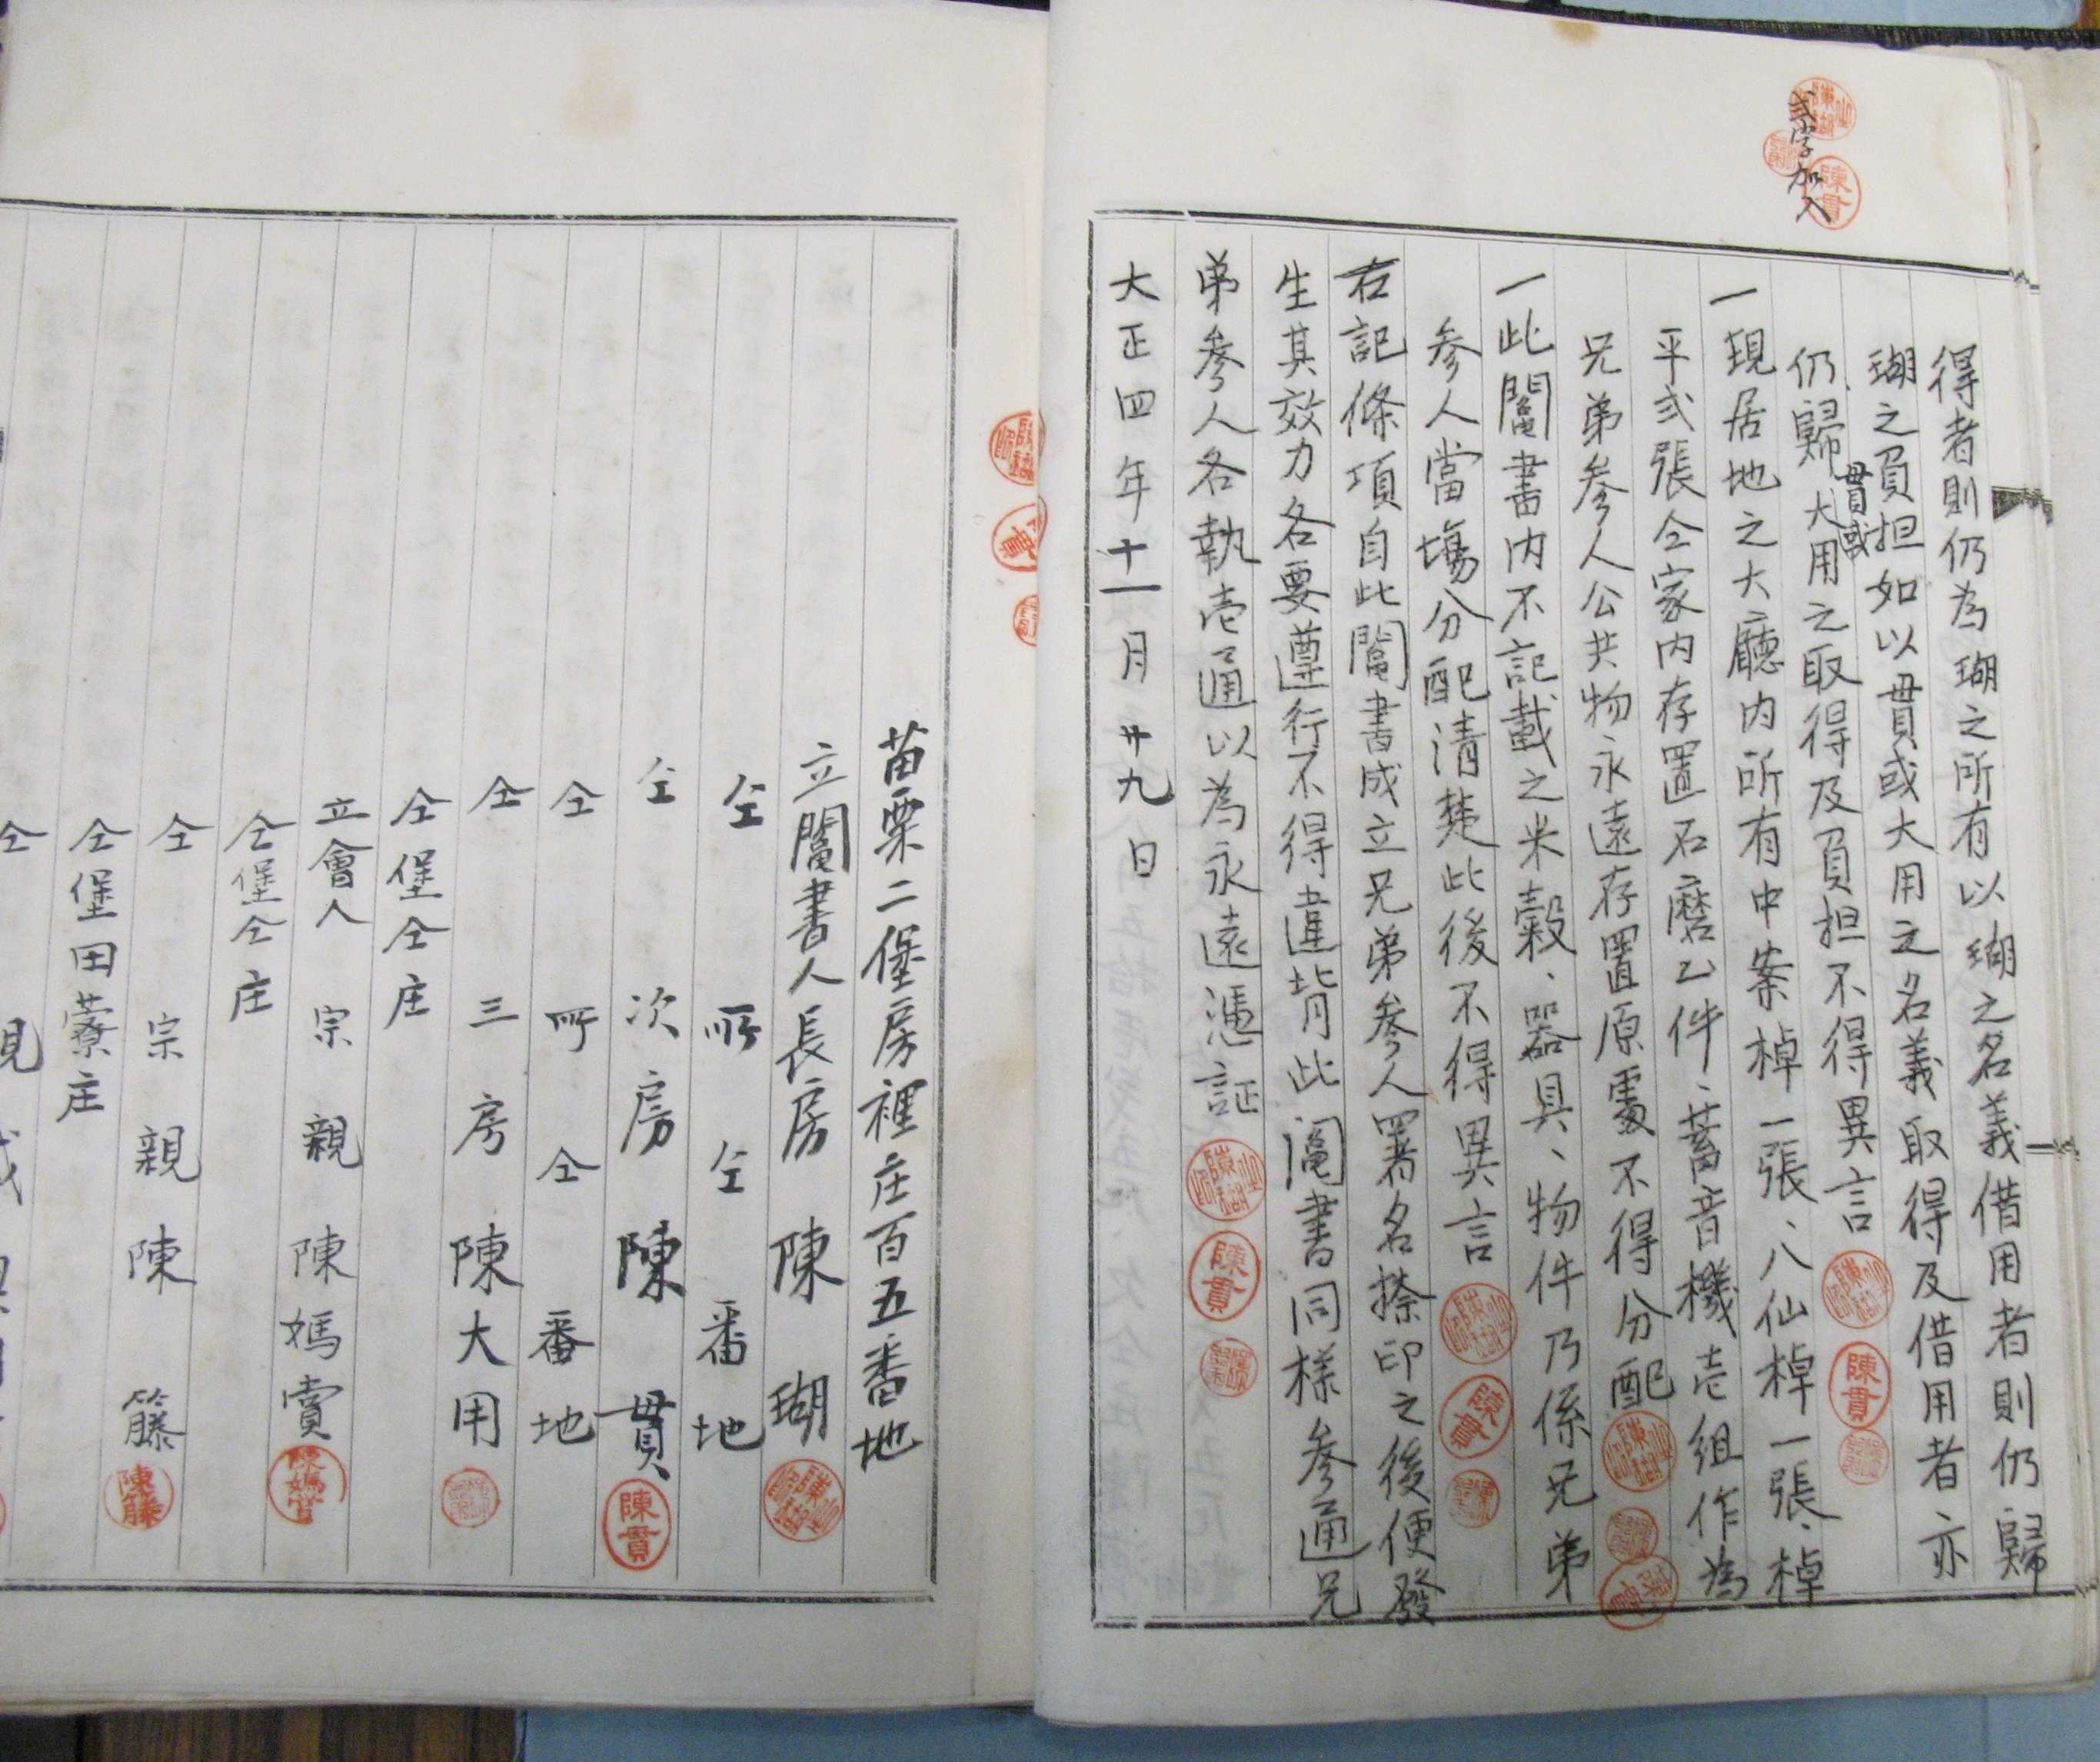 弍字加入
得者則仍為瑚之所有以瑚之名義借用者則仍歸
瑚之負担如以貫或大用之名義取得及借用者亦
仍歸貫或大用之取得及負担不得異言
一現居地之大廳内所有中案棹一張、八仙棹一張、棹
平弍張仝家内存置石磨乙件、蓄音機壱組作為
兄弟参人公共物永遠存置原處不得分配
一此鬮書内不記載之米穀、器具、物件乃係兄弟
参人當塲分配清楚此後不得異言
右記條項自此鬮書成立兄弟参人署名捺印之後便發
生其效力各要遵行不得違背此鬮書同樣参通兄
弟參人各執壱通以為永遠憑証
大正四年十一月廿九日
苗栗二堡房裡庄百五番地
立鬮書人長房 陳 瑚
仝所仝番地
仝 次房 陳 貫
仝所仝番地
仝 三房 陳大用
仝堡仝庄
立會人 宗親 陳媽賞
仝堡仝庄
仝 宗親 陳 籐
仝堡田藔庄
仝
陳貫
陳媽賞
陳籐